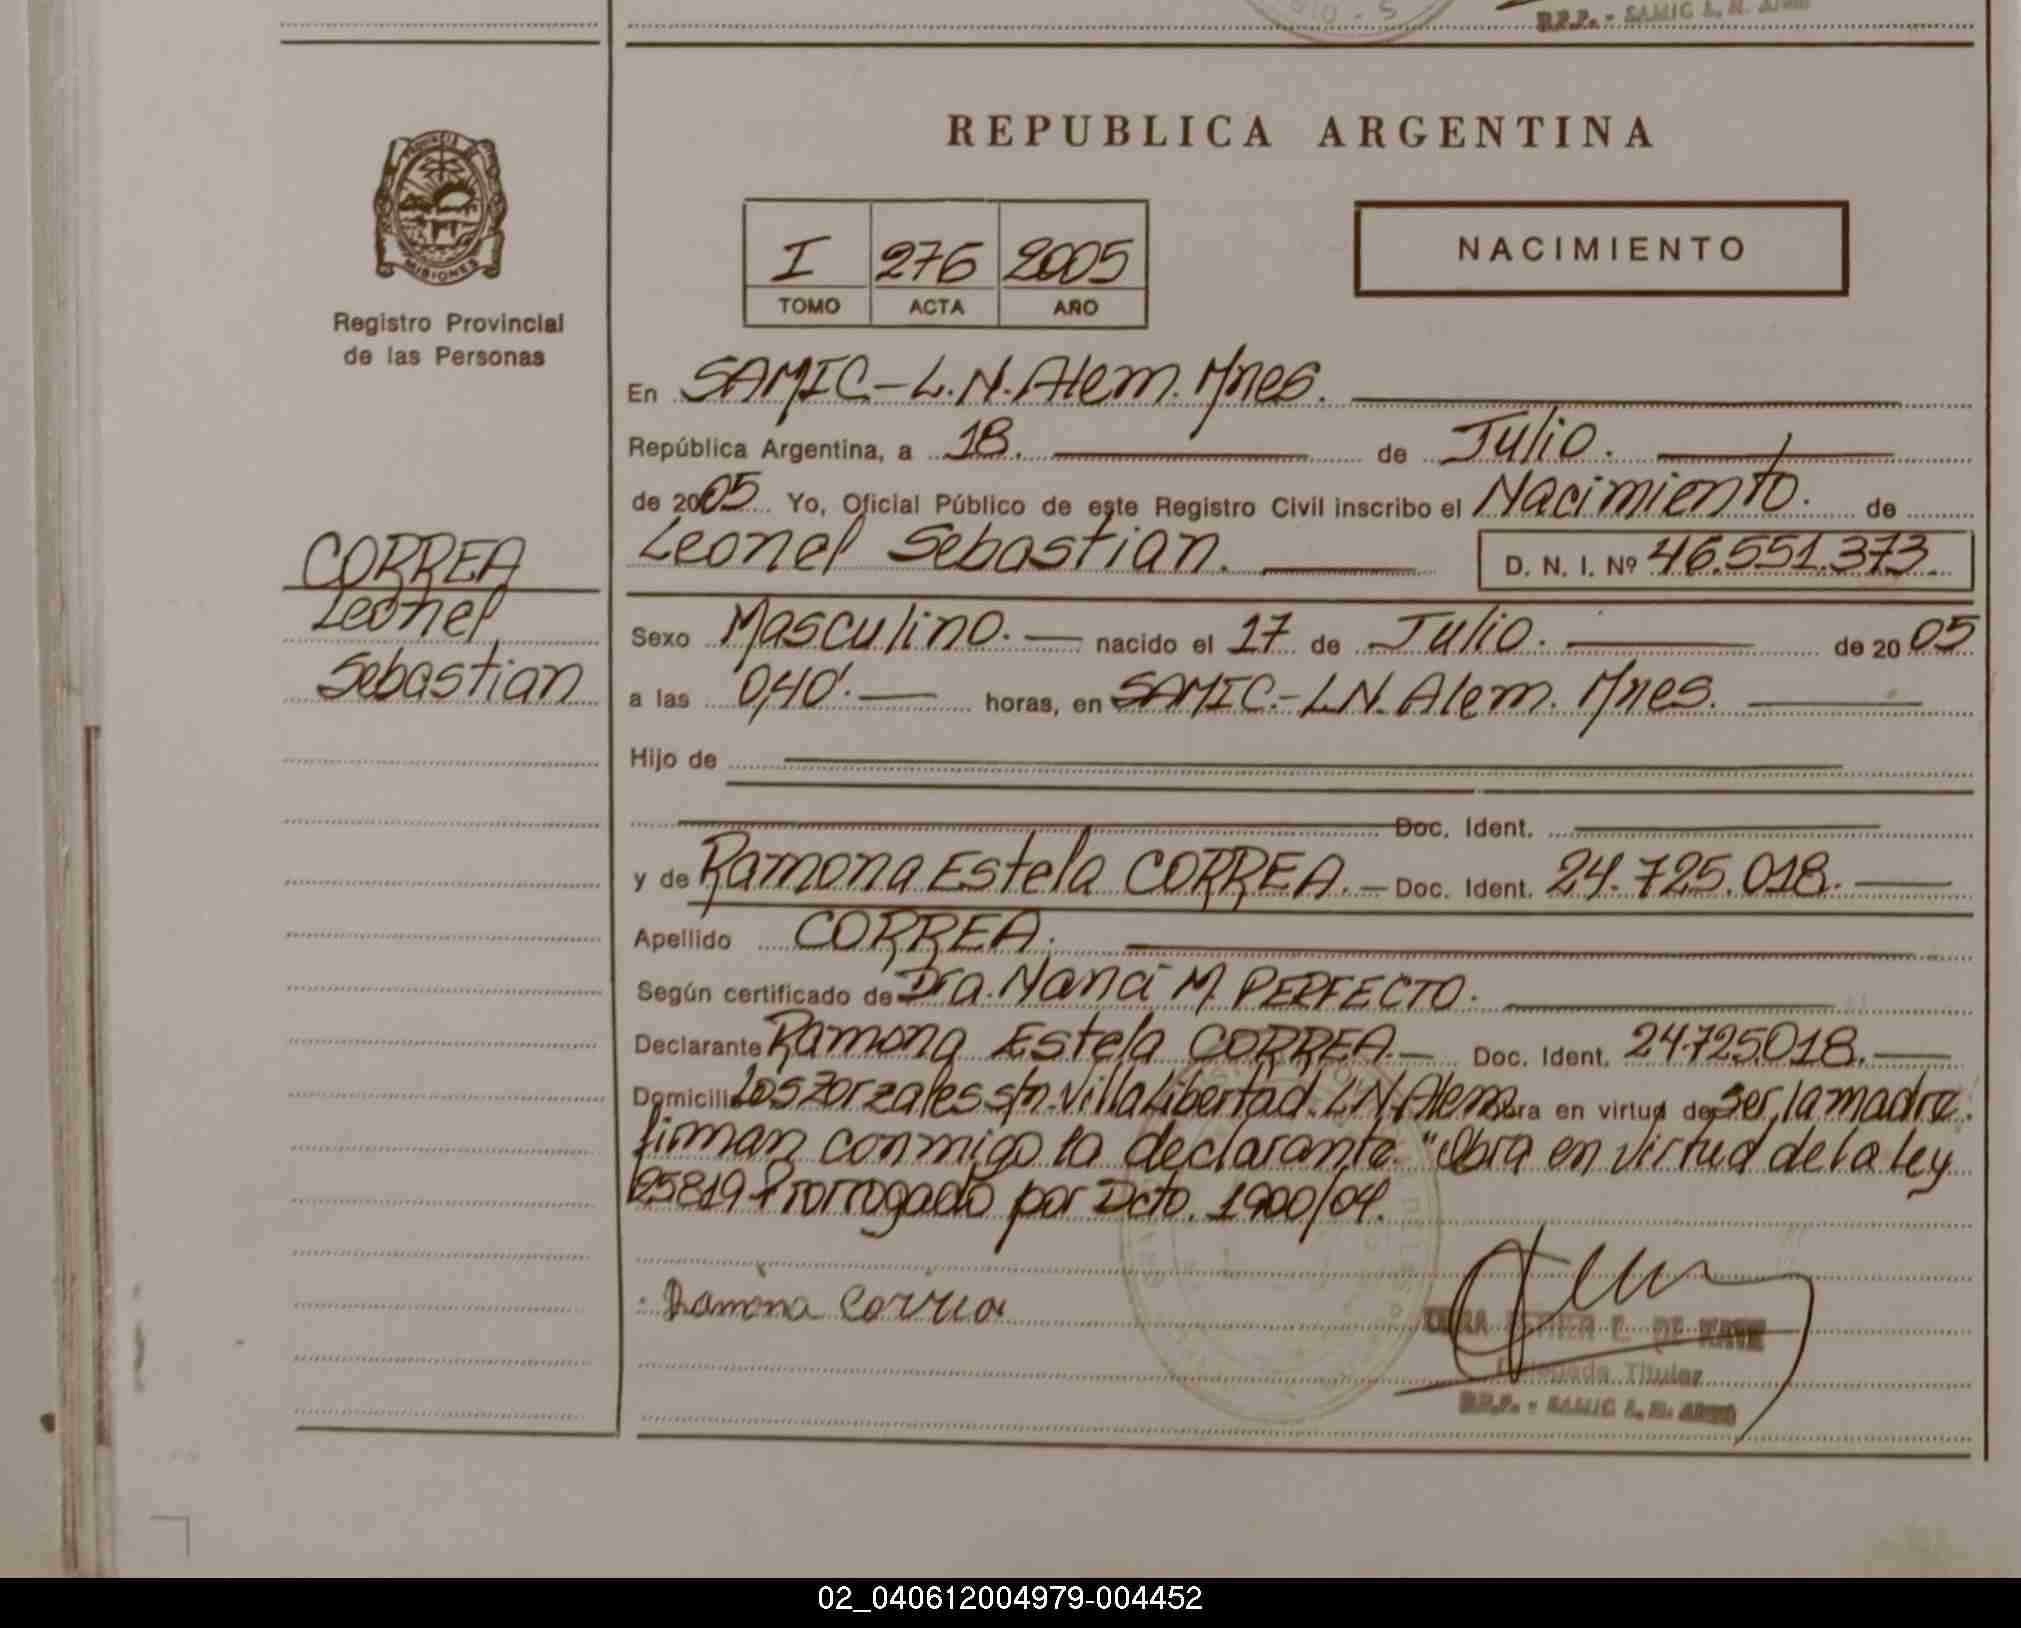 D.P.P. - SAMIC L. N. ALEM
REPUBLICA ARGENTINA
PROVINCIA
MISIONES
Registro Provincial
de las Personas
I 276 2005
TOMO ACTA AÑO
NACIMIENTO
En SAMIC-L.N.Alem.Mnes.
República Argentina, a 18. de Julio.
de 2005 Yo, Oficial Público de este Registro Civil inscribo el Nacimiento. de
Leonel Sebastian. D. N. I. Nº 46.551.373.
CORREA
Leonel
Sebastian
Sexo Masculino. nacido el 17 de Julio. de 2005
a las 0,40'. horas, en SAMIC.-L.N.Alem. Mnes.
Hijo de
Doc. Ident.
y de Ramona Estela CORREA. Doc. Ident. 24.725.018.
Apellido CORREA.
Según certificado de Dra. Nanci M. PERFECTO.
Declarante Ramona Estela CORREA. Doc. Ident. 24.725.018.
Domicilio Los Zorzales s/n. Villa Libertad. L.N.Alem obra en virtud de ser la madre.
firman conmigo la declarante. "Obra en virtud de la ley
25819 Prorrogado por Dcto. 1900/04.
Ramona Correa
ESTHER DE
Delegada Titular
D.P.P. - SAMIC L. N. ALEM
02_040612004979-004452